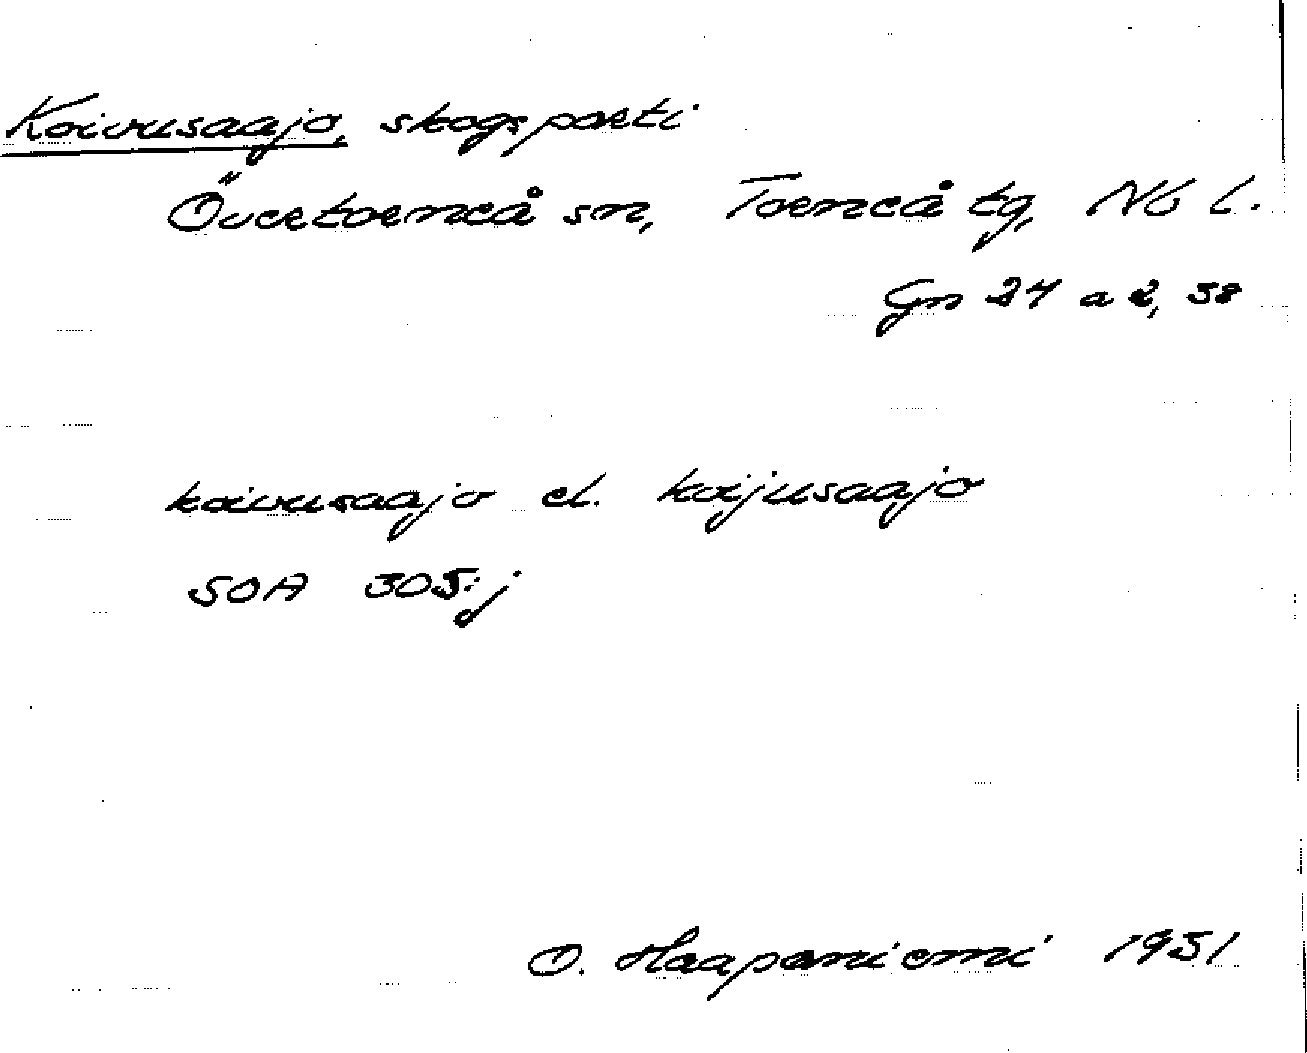 Koivusaajo, skogsparti
Övertorneå sn, Torneå tg, Nb l.
Gn 24 a 2, 38
koivusaajo el. koijusaajo
SOA 305:j
O. Haapaniemi 1951